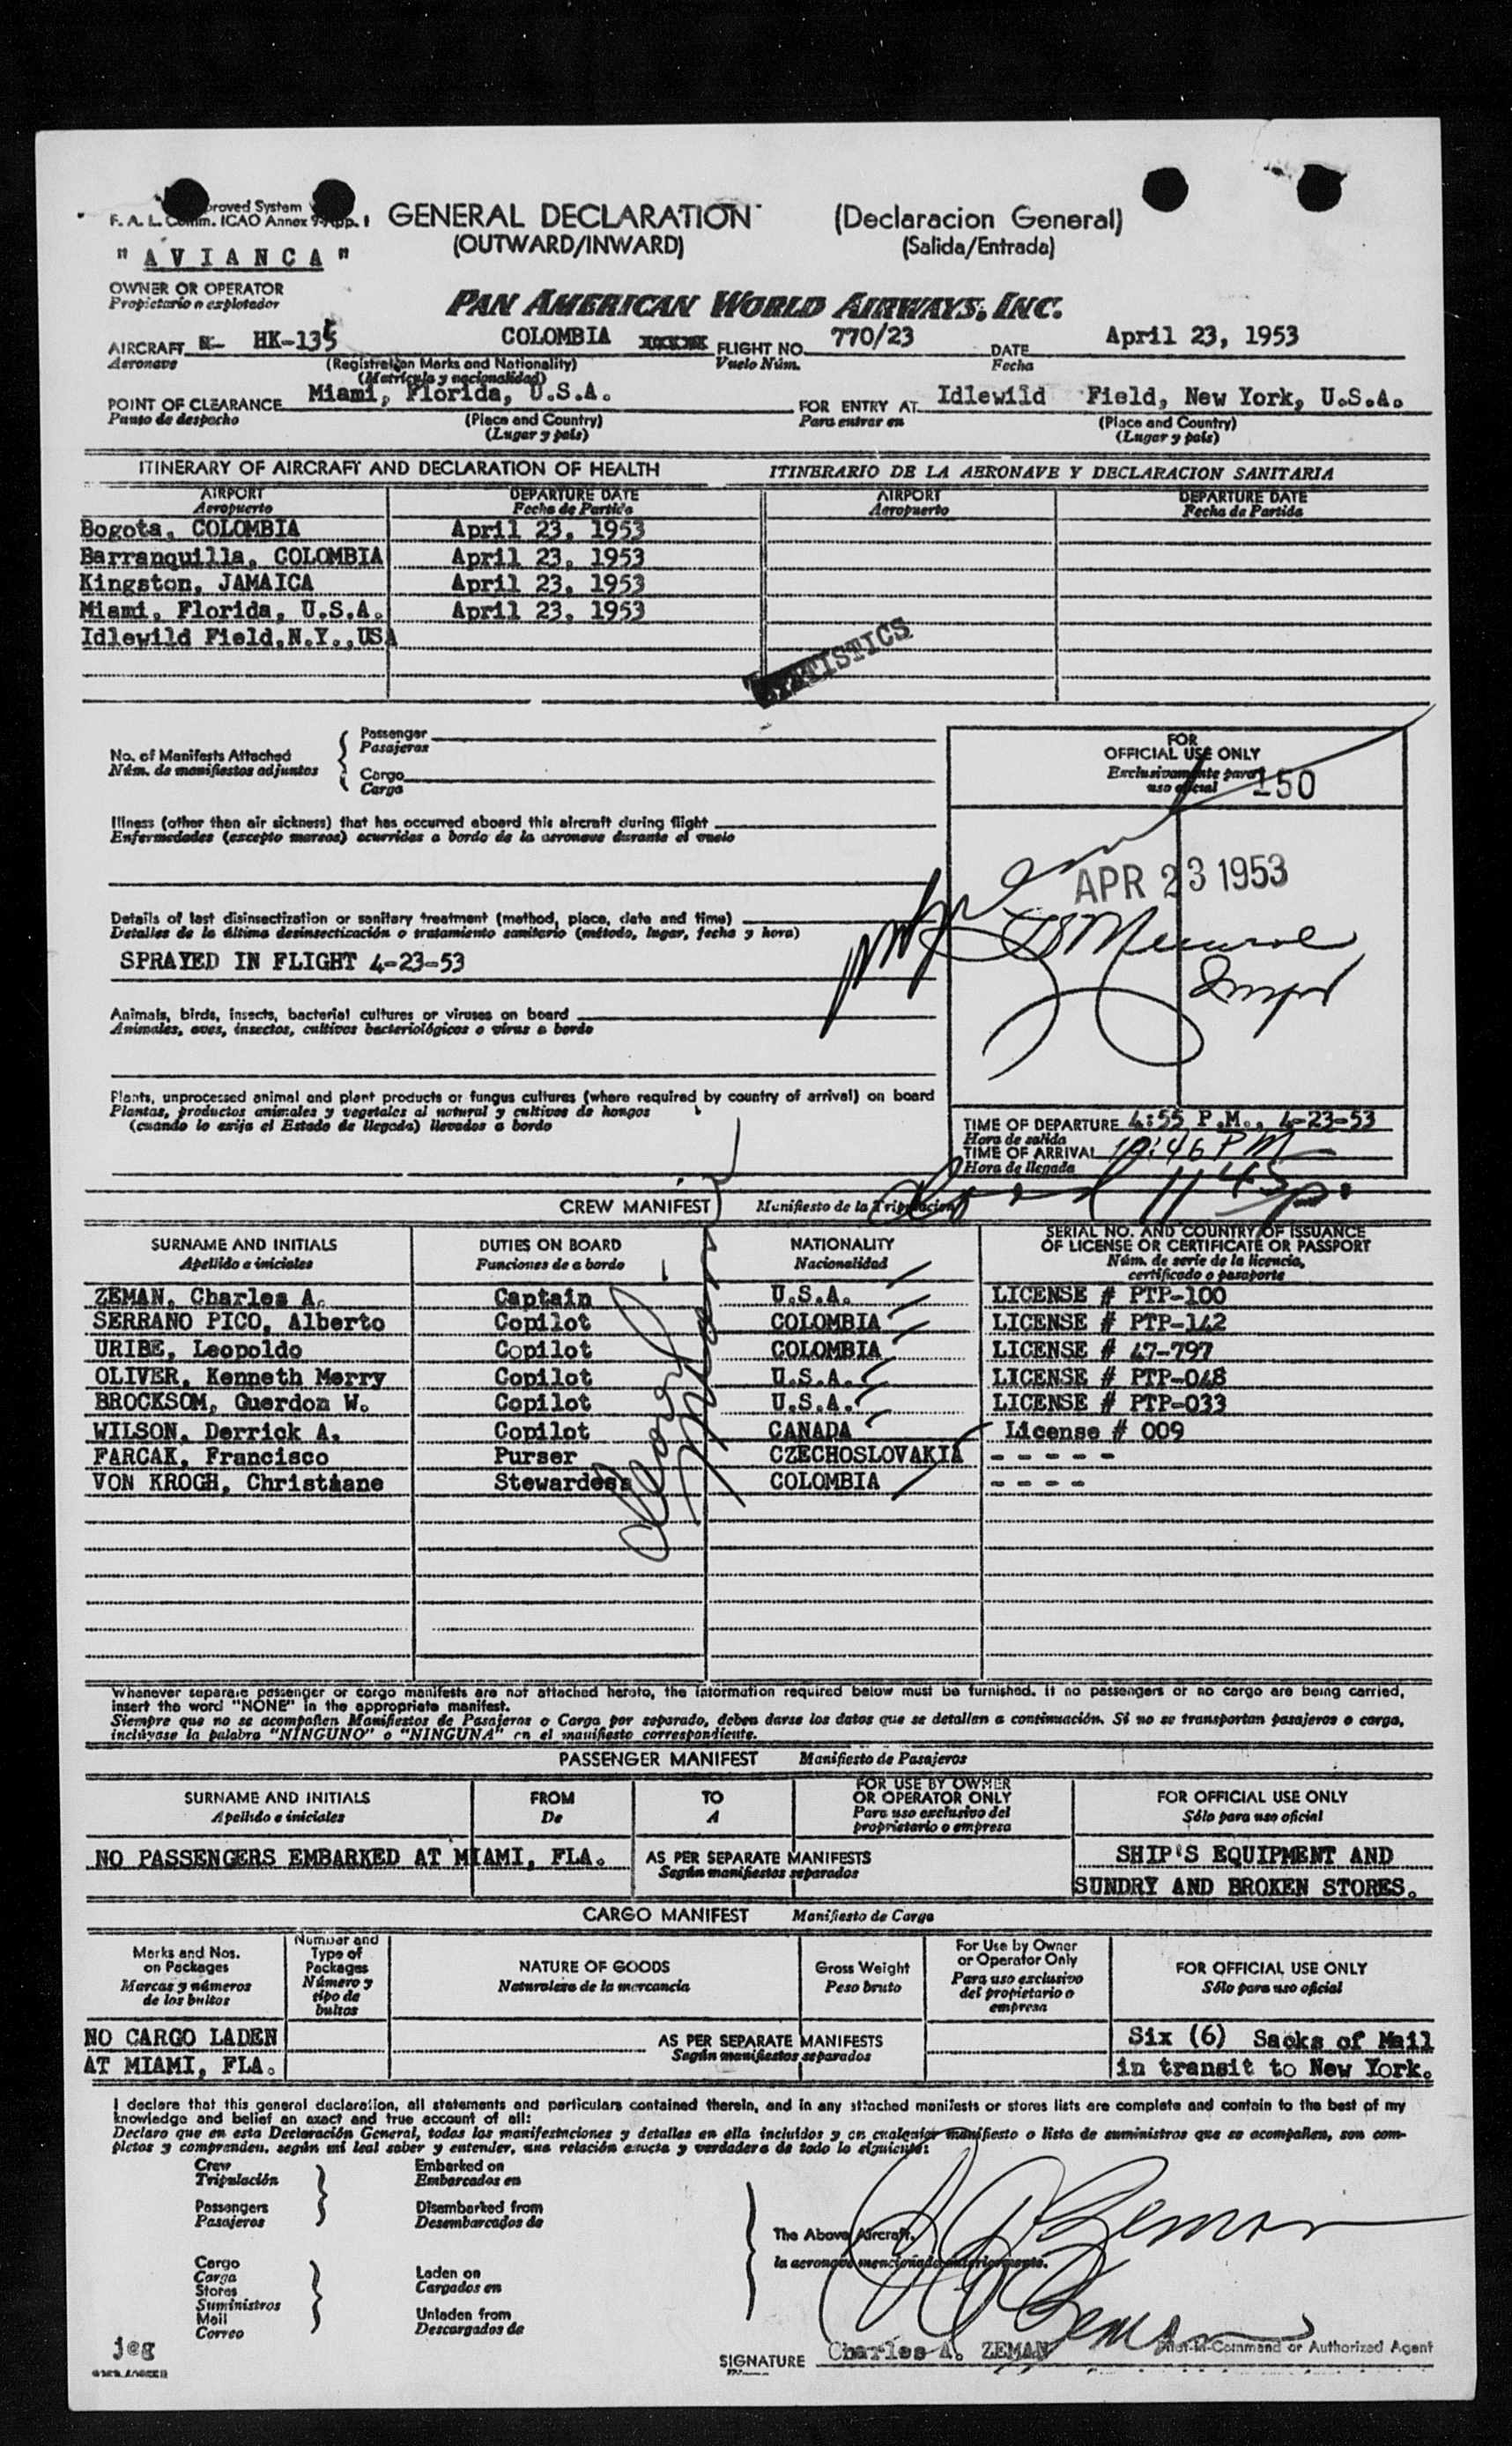 proved System
F. A. L. Comm. ICAO Annex 9-App. 1
GENERAL DECLARATION (Declaracion General)
(OUTWARD/INWARD) (Salida/Entrada)
" A V I A N C A "
OWNER OR OPERATOR
Propietario o explotador
PAN AMERICAN WORLD AIRWAYS, INC.
AIRCRAFT N- HK-135 COLOMBIA FLIGHT NO. 770/23 DATE April 23, 1953
Aeronave (Registration Marks and Nationality) Vuelo Núm. Fecha
(Matrícula y nacionalidad)
POINT OF CLEARANCE Miami, Florida, U.S.A. FOR ENTRY AT Idlewild Field, New York, U.S.A.
Punto de despacho (Place and Country) Para entrar en (Place and Country)
(Lugar y país) (Lugar y país)
ITINERARY OF AIRCRAFT AND DECLARATION OF HEALTH ITINERARIO DE LA AERONAVE Y DECLARACION SANITARIA
AIRPORT DEPARTURE DATE AIRPORT DEPARTURE DATE
Aeropuerto Fecha de Partida Aeropuerto Fecha de Partida
Bogota, COLOMBIA April 23, 1953
Barranquilla, COLOMBIA April 23, 1953
Kingston, JAMAICA April 23, 1953
Miami, Florida, U.S.A. April 23, 1953
Idlewild Field,N.Y.,USA
STATISTICS
No. of Manifests Attached
Núm. de manifiestos adjuntos
Passenger
Pasajeros
Cargo
Carga
FOR
OFFICIAL USE ONLY
Exclusivamente para
uso oficial
150
Illness (other than air sickness) that has occurred aboard this aircraft during flight
Enfermedades (excepto mareos) ocurridas a bordo de la aeronave durante el vuelo
APR 23 1953
Details of last disinsectization or sanitary treatment (method, place, date and time)
Detalles de la última desinsectización o tratamiento sanitario (método, lugar, fecha y hora)
SPRAYED IN FLIGHT 4-23-53
Animals, birds, insects, bacterial cultures or viruses on board
Animales, aves, insectos, cultivos bacteriológicos o virus a bordo
Plants, unprocessed animal and plant products or fungus cultures (where required by country of arrival) on board
Plantas, productos animales y vegetales al natural y cultivos de hongos
(cuando lo exija el Estado de llegada) llevados a bordo
TIME OF DEPARTURE 4:55 P.M., 4-23-53
Hora de salida
TIME OF ARRIVAL 10:46 PM
Hora de llegada
1145p
CREW MANIFEST Manifiesto de la Tripulacion
SURNAME AND INITIALS DUTIES ON BOARD NATIONALITY SERIAL NO. AND COUNTRY OF ISSUANCE
OF LICENSE OR CERTIFICATE OR PASSPORT
Apellido e iniciales Funciones de a bordo Nacionalidad Núm. de serie de la licencia,
certificado o pasaporte
ZEMAN, Charles A. Captain U.S.A. LICENSE # PTP-100
SERRANO PICO, Alberto Copilot COLOMBIA LICENSE # PTP-142
URIBE, Leopoldo Copilot COLOMBIA LICENSE # 47-797
OLIVER, Kenneth Merry Copilot U.S.A. LICENSE # PTP-048
BROCKSOM, Guerdon W. Copilot U.S.A. LICENSE # PTP-033
WILSON, Derrick A. Copilot CANADA License # 009
FARCAK, Francisco Purser CZECHOSLOVAKIA - - - - -
VON KROGH, Christiane Stewardess COLOMBIA - - - -
Whenever separate passenger or cargo manifests are not attached hereto, the information required below must be furnished. If no passengers or no cargo are being carried,
insert the word "NONE" in the appropriate manifest.
Siempre que no se acompañen Manifiestos de Pasajeros o Carga por separado, deben darse los datos que se detallan a continuación. Si no se transportan pasajeros o carga,
inclúyase la palabra "NINGUNO" o "NINGUNA" en el manifiesto correspondiente.
PASSENGER MANIFEST Manifiesto de Pasajeros
SURNAME AND INITIALS FROM TO FOR USE BY OWNER
OR OPERATOR ONLY FOR OFFICIAL USE ONLY
Apellido e iniciales De A Para uso exclusivo del
propietario o empresa Sólo para uso oficial
NO PASSENGERS EMBARKED AT MIAMI, FLA. AS PER SEPARATE MANIFESTS SHIP'S EQUIPMENT AND
Según manifiestos separados
SUNDRY AND BROKEN STORES.
CARGO MANIFEST Manifiesto de Carga
Marks and Nos.
on Packages
Marcas y números
de los bultos
Number and
Type of
Packages
Número y
tipo de
bultos
NATURE OF GOODS
Naturaleza de la mercancía
Gross Weight
Peso bruto
For Use by Owner
or Operator Only
Para uso exclusivo
del propietario o
empresa
FOR OFFICIAL USE ONLY
Sólo para uso oficial
NO CARGO LADEN AS PER SEPARATE MANIFESTS Six (6) Sacks of Mail
Según manifiestos separados
AT MIAMI, FLA. in transit to New York.
I declare that this general declaration, all statements and particulars contained therein, and in any attached manifests or stores lists are complete and contain to the best of my
knowledge and belief an exact and true account of all:
Declaro que en esta Declaración General, todas las manifestaciones y detalles en ella incluidos y en cualquier manifiesto o lista de suministros que se acompañen, son com-
pletos y comprenden, según mi leal saber y entender, una relación exacta y verdadera de todo lo siguiente:
Crew Embarked on
Tripulación Embarcados en
Passengers Disembarked from
Pasajeros Desembarcados de
The Above Aircraft.
la aeronave mencionada anteriormente.
Cargo Laden on
Carga Cargados en
Stores
Suministros
Mail Unladen from
Correo Descargados de
jeg
SIGNATURE Charles A. ZEMAN Pilot-in-Command or Authorized Agent